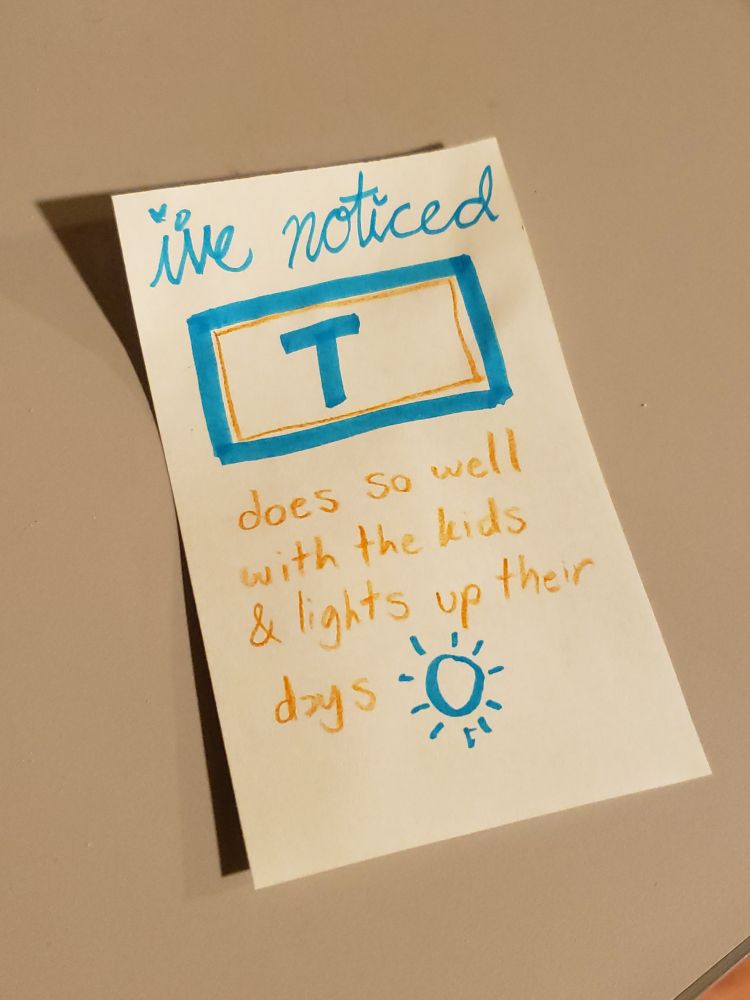 i've noticed
T
does so well
with the kids
& lights up their
days